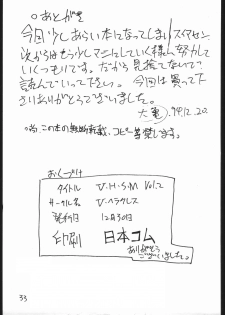 ○あとがき
今回少しあらい本になってしまいスイマセン
次からはもう少しマニにしていく様に努力して
いくつもりです。だから見捨てないで
読んでいって下さい。今回は買って下
さいありがとうございました。
'94.12.20.
○尚、この本の無断転載、コピーを禁じます。
おくづけ
タイトル V・H・S・M Vol.2
サークル名 V・ヘラクレス
発行日 12月30日
印刷 日本コム
ありがとう
ございました。
33